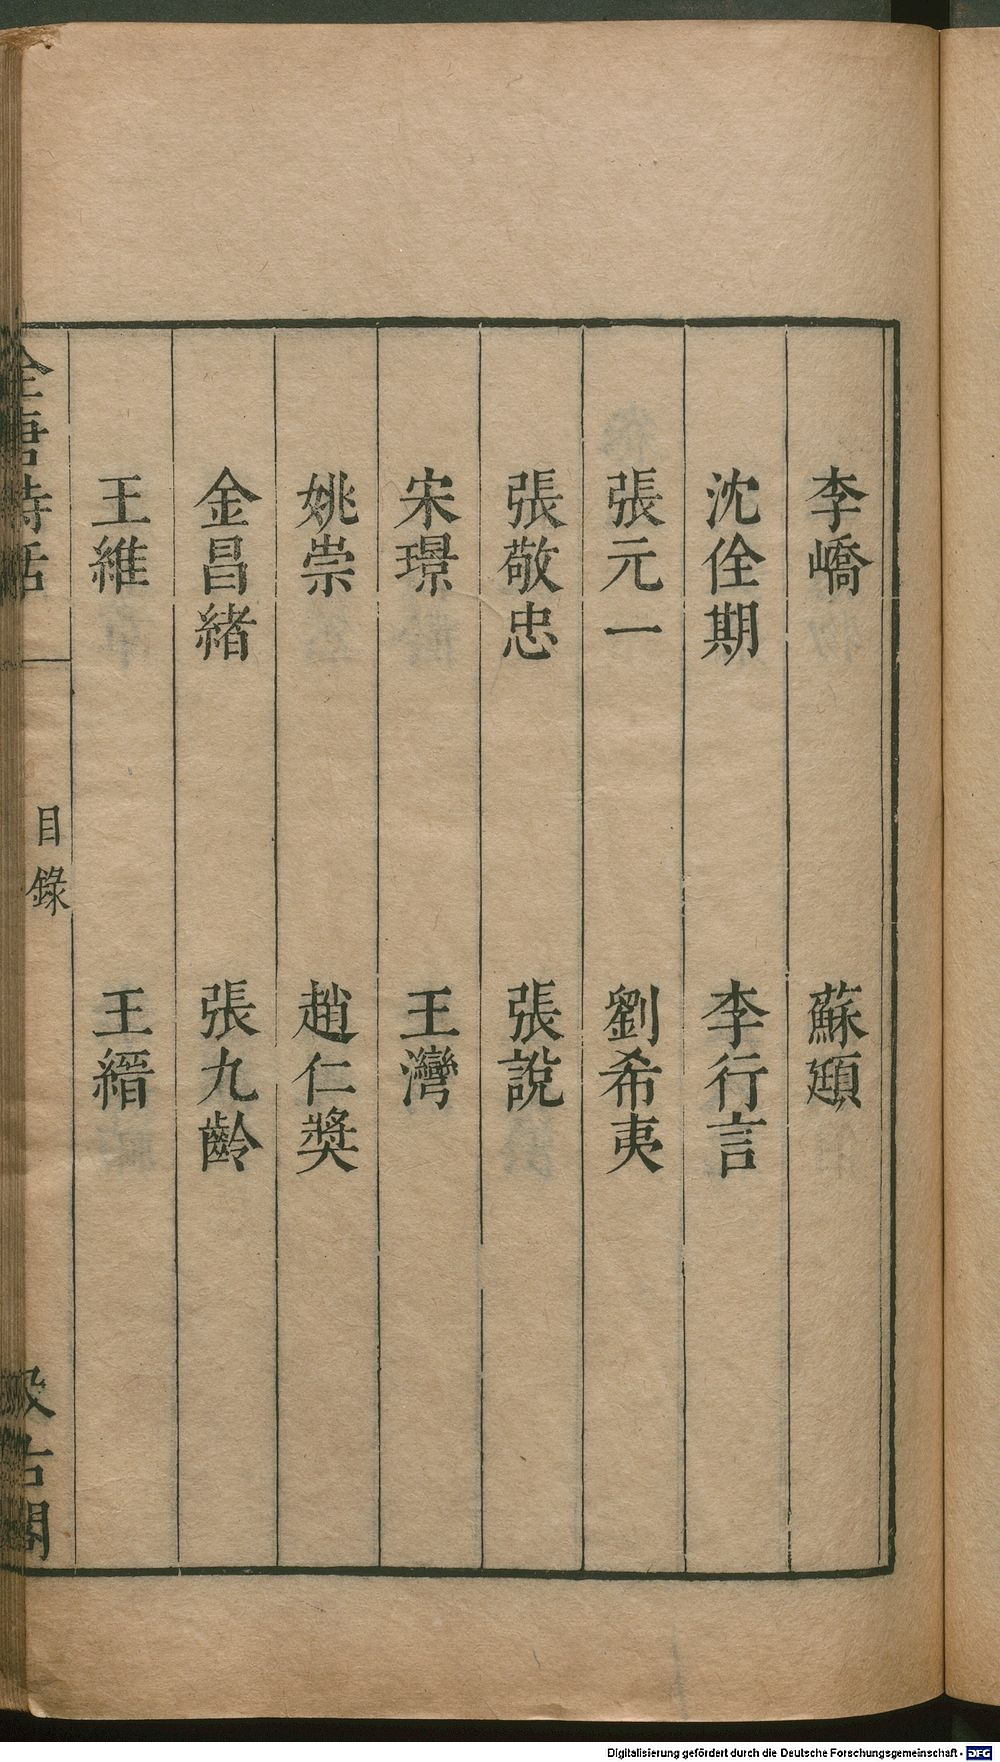 李嶠 蘇頲
沈佺期 李行言
張元一 劉希夷
張敬忠 張說
宋璟 王灣
姚崇 趙仁獎
金昌緒 張九齡
王維 王縉
全唐詩話 目錄 汲古閣
Digitalisierung gefördert durch die Deutsche Forschungsgemeinschaft - DFG